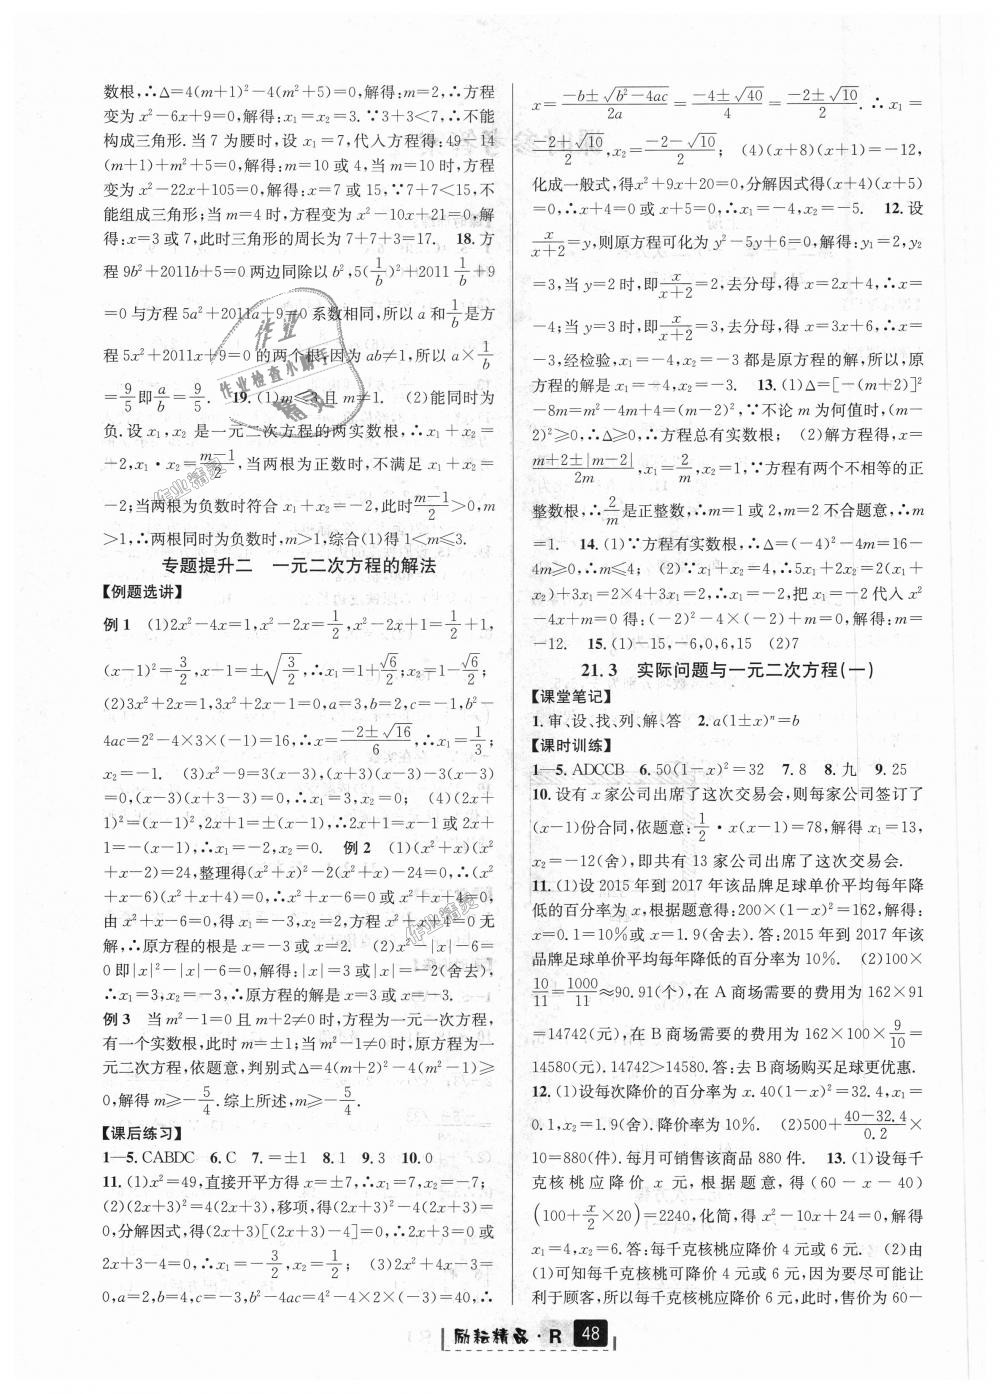 数根,∴Δ=4(m+1)²-4(m²+5)=0,解得:m=2,∴方程
变为 x²-6x+9=0,解得:x₁=x₂=3.∵3+3<7,∴不能
构成三角形. 当 7 为腰时,设 x₁=7,代入方程得:49-14
(m+1)+m²+5=0,解得:m=10 或 4,当 m=10 时,方程
变为 x²-22x+105=0,解得:x=7 或 15,∵7+7<15,不
能组成三角形;当 m=4 时,方程变为 x²-10x+21=0,解
得:x=3 或 7,此时三角形的周长为 7+7+3=17. 18. 方
程 9b²+2011b+5=0 两边同除以 b²,5(1/b)²+2011 1/b+9
=0 与方程 5a²+2011a+9=0 系数相同,所以 a 和 1/b 是方
程 5x²+2011x+9=0 的两个根,因为 ab≠1,所以 a×1/b
=9/5 即 a/b=9/5. 19. (1)m≤3 且 m≠1. (2)能同时为
负. 设 x₁,x₂ 是一元二次方程的两实数根,∴x₁+x₂=
-2,x₁·x₂=(m-1)/2,当两根为正数时,不满足 x₁+x₂=
-2;当两根为负数时符合 x₁+x₂=-2,此时(m-1)/2>0,m
>1,∴两根同时为负数时,m>1,综合(1)得 1<m≤3.
专题提升二 一元二次方程的解法
【例题选讲】
例 1 (1)2x²-4x=1,x²-2x=1/2,x²-2x+1=1/2+1,
(x-1)²=3/2,x-1=±√(3/2),∴x₁=1+√6/2;x₂=1-√6/2;
(2)3x²+2x=1,3x²+2x-1=0,a=3,b=2,c=-1,b²-
4ac=2²-4×3×(-1)=16,∴x=(-2±√16)/6,∴x₁=1/3;
x₂=-1. (3)x²-9=3(x-3),(x+3)(x-3)-3(x-3)
=0,(x-3)(x+3-3)=0,∴x₁=3,x₂=0; (4)(2x+
1)²=(x-1)²,2x+1=±(x-1),∴2x+1=x-1 或 2x+
1=-(x-1),∴x₁=-2,x₂=0. 例 2 (1)(x²+x)(x²
+x-2)=24,整理得(x²+x)²-2(x²+x)-24=0,∴(x²
+x-6)(x²+x+4)=0,∴x²+x-6=0 或 x²+x+4=0,
由 x²+x-6=0,得 x₁=-3,x₂=2,方程 x²+x+4=0 无
解,∴原方程的根是 x=-3 或 x=2. (2)x²-|x|-6=
0 即|x|²-|x|-6=0,解得:|x|=3 或|x|=-2(舍去),
∴x₁=3,x₂=-3,∴原方程的解是 x=3 或 x=-3.
例 3 当 m²-1=0 且 m+2≠0 时,方程为一元一次方程,
有一个实数根,此时 m=±1;当 m²-1≠0 时,原方程为一
元二次方程,依题意,判别式 Δ=4(m+2)²-4(m²-1)≥
0,解得 m≥-5/4. 综上所述,m≥-5/4.
【课后练习】
1—5. CABDC 6. C 7. =±1 8. 1 9. 3 10. 0
11. (1)x²=49,直接开平方得 x=±7,∴x₁=7,x₂=-7;
(2)(2x+3)²=4(2x+3),移项,得(2x+3)²-4(2x+3)=
0,分解因式,得(2x+3)[(2x+3)-4]=0,∴2x+3=0 或
2x+3-4=0,∴x₁=-3/2,x₂=1/2; (3)2x²+4x-3=
0,a=2,b=4,c=-3,b²-4ac=4²-4×2×(-3)=40,∴
x=(-b±√(b²-4ac))/2a=(-4±√40)/4=(-2±√10)/2. ∴x₁=
(-2+√10)/2,x₂=(-2-√10)/2; (4)(x+8)(x+1)=-12,
化成一般式,得 x²+9x+20=0,分解因式得(x+4)(x+5)
=0,∴x+4=0 或 x+5=0,∴x₁=-4,x₂=-5. 12. 设
x/(x+2)=y,则原方程可化为 y²-5y+6=0,解得:y₁=2,y₂
=3,当 y=2 时,即 x/(x+2)=2,去分母,得 x=2x+4,∴x=
-4;当 y=3 时,即 x/(x+2)=3,去分母,得 x=3x+6,∴x=
-3,经检验,x₁=-4,x₂=-3 都是原方程的解,所以,原
方程的解是 x₁=-4,x₂=-3. 13. (1)Δ=[-(m+2)]²
-8m=m²-4m+4=(m-2)²,∵不论 m 为何值时,(m-
2)²≥0,∴Δ≥0,∴方程总有实数根; (2)解方程得,x=
(m+2±|m-2|)/2m,x₁=2/m,x₂=1,∵方程有两个不相等的正
整数根,∴2/m 是正整数,∴m=1 或 2,m=2 不合题意,∴m
=1. 14. (1)∵方程有实数根,∴Δ=(-4)²-4m=16-
4m≥0,∴m≤4; (2)∵x₁+x₂=4,∴5x₁+2x₂=2(x₁+
x₂)+3x₁=2×4+3x₁=2,∴x₁=-2,把 x₁=-2 代入 x²
-4x+m=0 得:(-2)²-4×(-2)+m=0,解得:m=
-12. 15. (1)-15,-6,0,6,15 (2)7
21. 3 实际问题与一元二次方程(一)
【课堂笔记】
1. 审、设、找、列、解、答 2. a(1±x)ⁿ=b
【课时训练】
1—5. ADCCB 6. 50(1-x)²=32 7. 8 8. 九 9. 25
10. 设有 x 家公司出席了这次交易会,则每家公司签订了
(x-1)份合同,依题意:1/2·x(x-1)=78,解得 x₁=13,
x₂=-12(舍),即共有 13 家公司出席了这次交易会.
11. (1)设 2015 年到 2017 年该品牌足球单价平均每年降
低的百分率为 x,根据题意得:200×(1-x)²=162,解得:
x=0.1=10%或 x=1.9(舍去). 答:2015 年到 2017 年该
品牌足球单价平均每年降低的百分率为 10%. (2)100×
10/11=1000/11≈90.91(个),在 A 商场需要的费用为 162×91
=14742(元),在 B 商场需要的费用为 162×100×9/10=
14580(元). 14742>14580. 答:去 B 商场购买足球更优惠.
12. (1)设每次降价的百分率为 x. 40(1-x)²=32.4,x₁=
0.1,x₂=1.9(舍),降价率为 10%. (2)500+(40-32.4)/0.2×
10=880(件). 每月可销售该商品 880 件. 13. (1)设每千
克核桃应降价 x 元,根据题意,得(60-x-40)
(100+x/2×20)=2240,化简,得 x²-10x+24=0,解得
x₁=4,x₂=6. 答:每千克核桃应降价 4 元或 6 元. (2)由
(1)可知每千克核桃可降价 4 元或 6 元,因为要尽可能让
利于顾客,所以每千克核桃应降价 6 元,此时,售价为 60-
励耘精品·R 48
作业
作业检查小助手
精灵
作业精灵
作业精灵